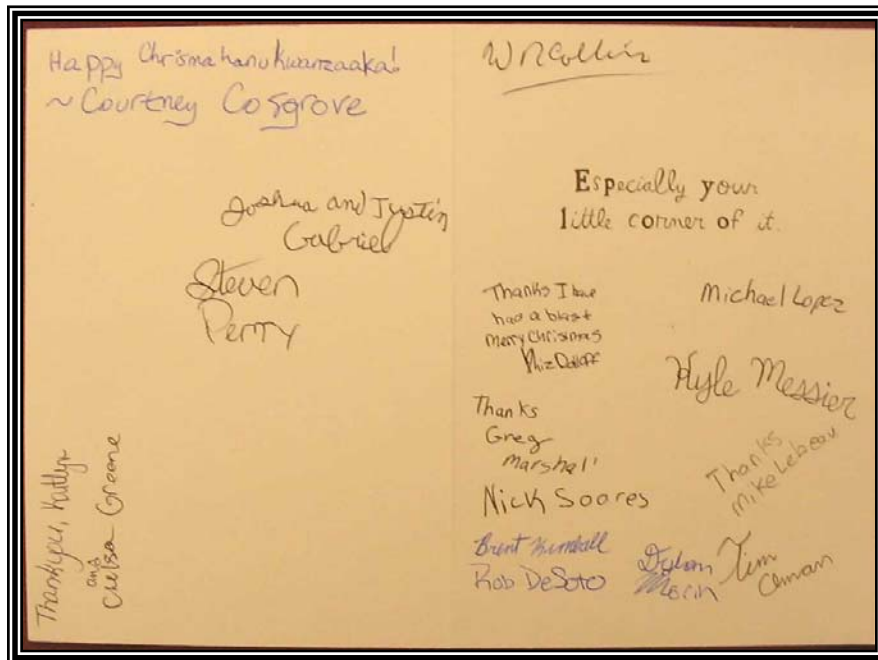 Happy Chrismahanukwanzaaka!
~ Courtney Cosgrove
Joshua and Justin
Gabriel
Steven
Perry
Thankyou, Kaitlyn
and
Chelsa Greene
Especially your
little corner of it.
Thanks I have
had a blast
Merry Christmas
Michael Lopez
Kyle Messier
Thanks
Greg
Marshall
Nick Soares
Thanks
Mike Lebeau
Brent Kimball
Rob DeSoto
Dylan
Morin
Tim